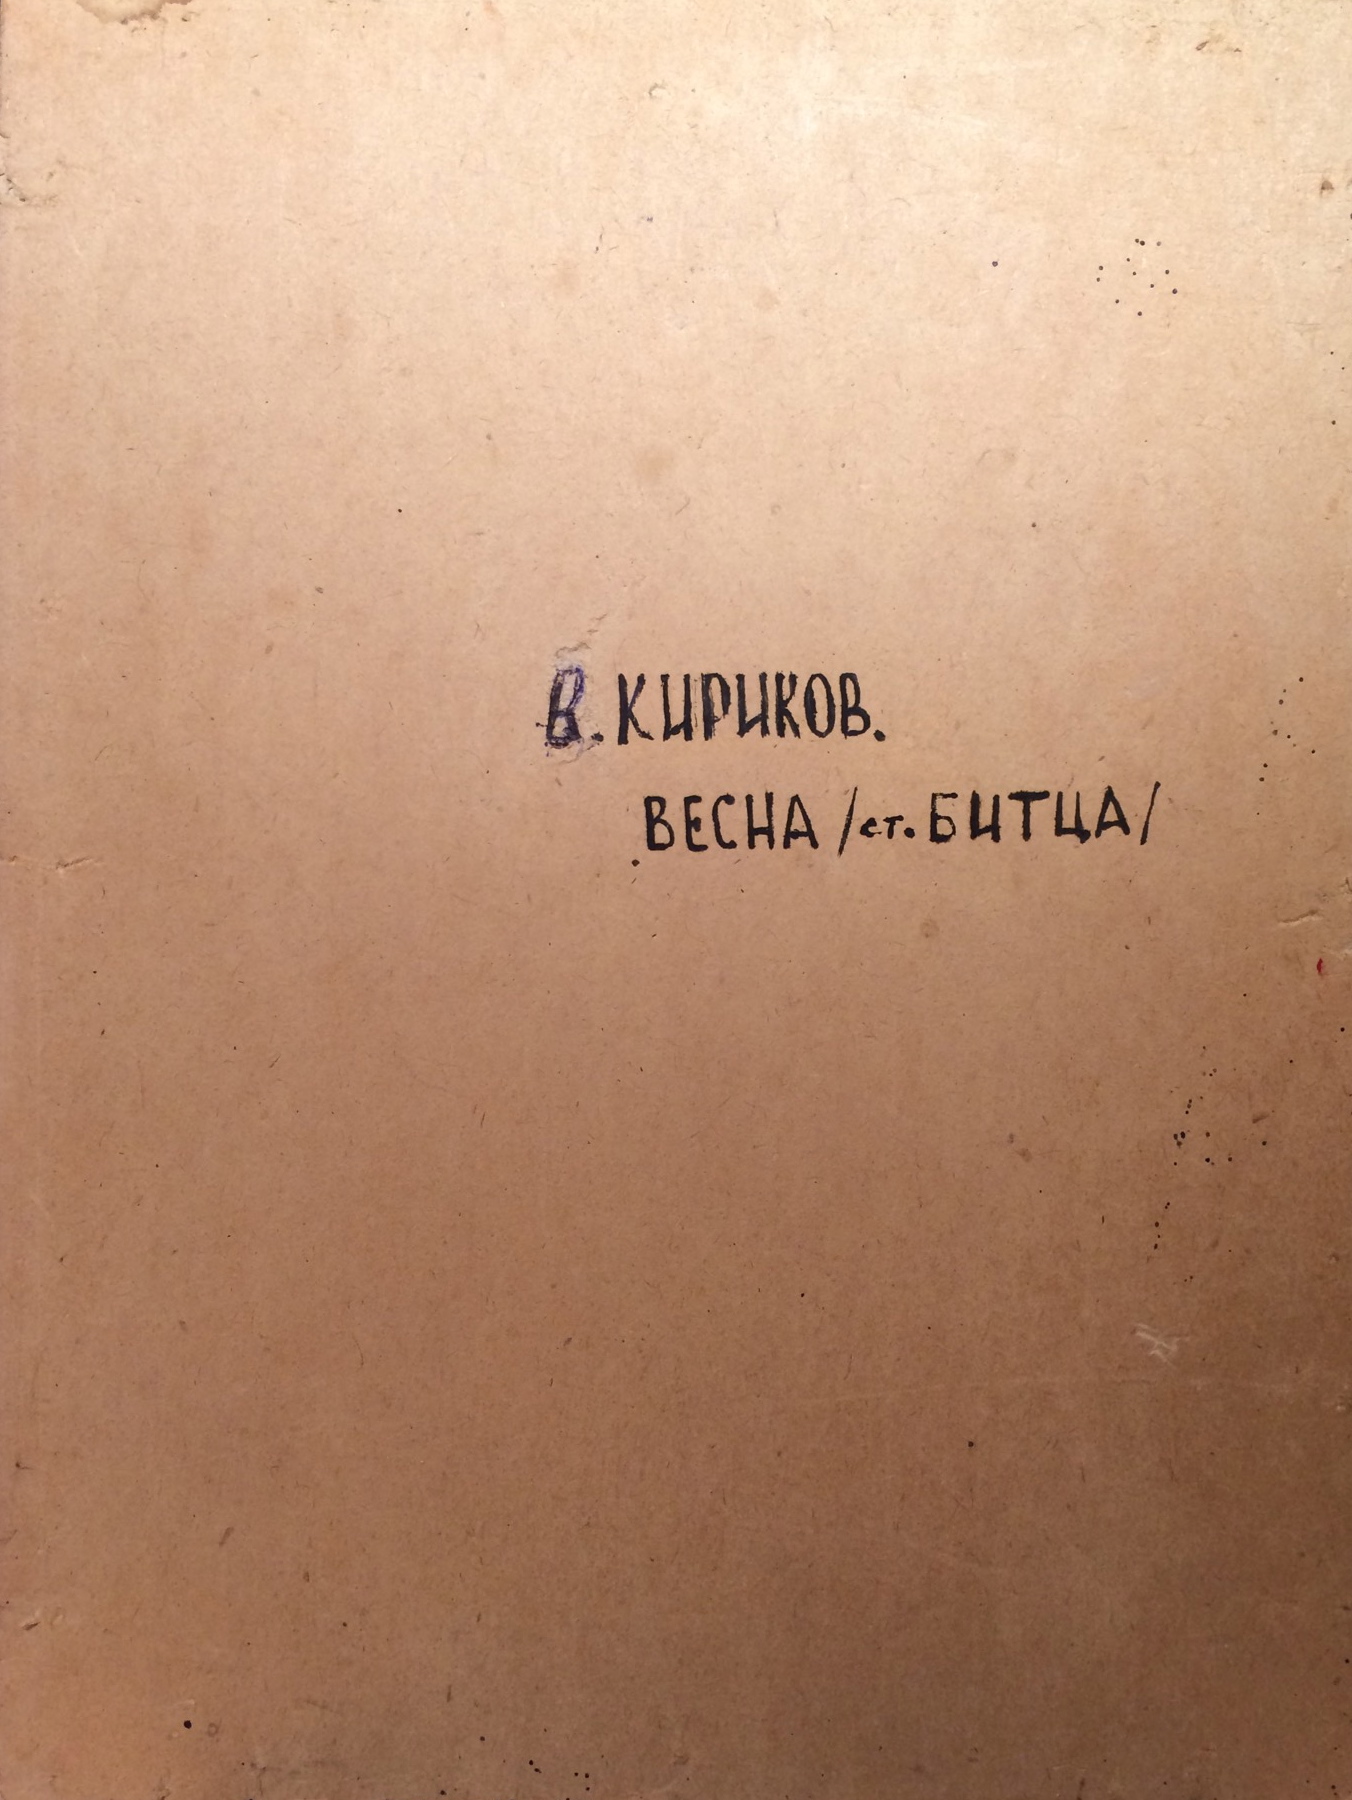 В. КИРИКОВ.
ВЕСНА /ст. БИТЦА/